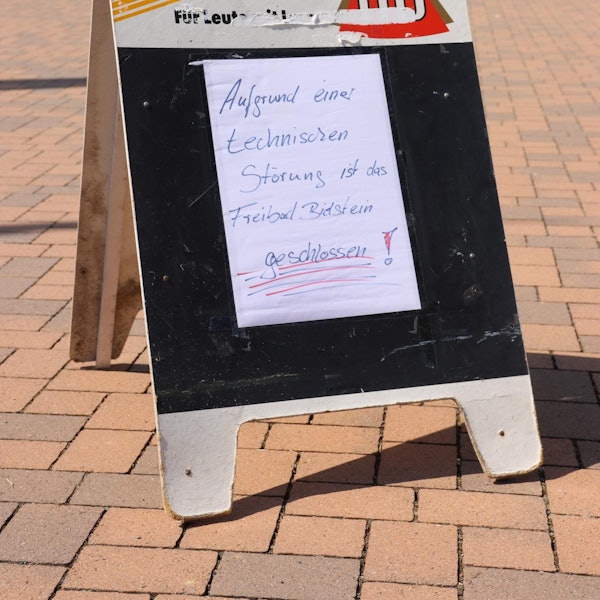 Für Leute
Aufgrund einer
technischen
Störung ist das
Freibad Bidstein
geschlossen!